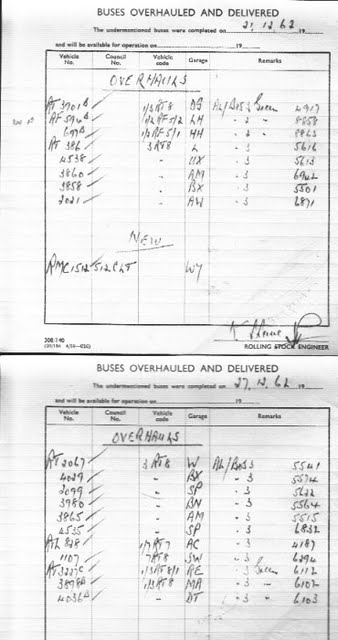 BUSES OVERHAULED AND DELIVERED
The undermentioned buses were completed on 21.12.62 19
and will be available for operation on 19
Vehicle No. Council No. Vehicle code Garage Remarks
OVERHAULS
RT 3701B 1/3 RT8 DS AL/BOS3 Green 4917
RF 594B 1/2 RF5/2 LH - 2 - 8858
697B 1/2 RF5/1 HH - 2 - 8863
RT 386 3 RT8 L - 3 5616
4538 - UX - 3 5613
3860 - AM - 3 6942
3858 - BX - 3 5501
2021 - AW - 3 6871
NEW
RMC1512 512CLT WY
ROLLING STOCK ENGINEER
BUSES OVERHAULED AND DELIVERED
The undermentioned buses were completed on 27.12.62 19
and will be available for operation on 19
Vehicle No. Council No. Vehicle code Garage Remarks
OVERHAULS
RT 2067 3 RT8 W AL/BOS3 5541
4029 - BX - 3 5574
2099 - SP - 3 5622
3980 - BN - 3 5564
3865 - AM - 3 5515
4535 - SP - 3 6832
RTL 828 1/7 RT7 AC - 3 4187
1107 7RT8 BW - 3 6294
RT3227C 1/3 RT8/1 RE - 3 Green 6112
3898B 1/3 RT8 MA - 3 - 6102
4036B - DT - 3 6103